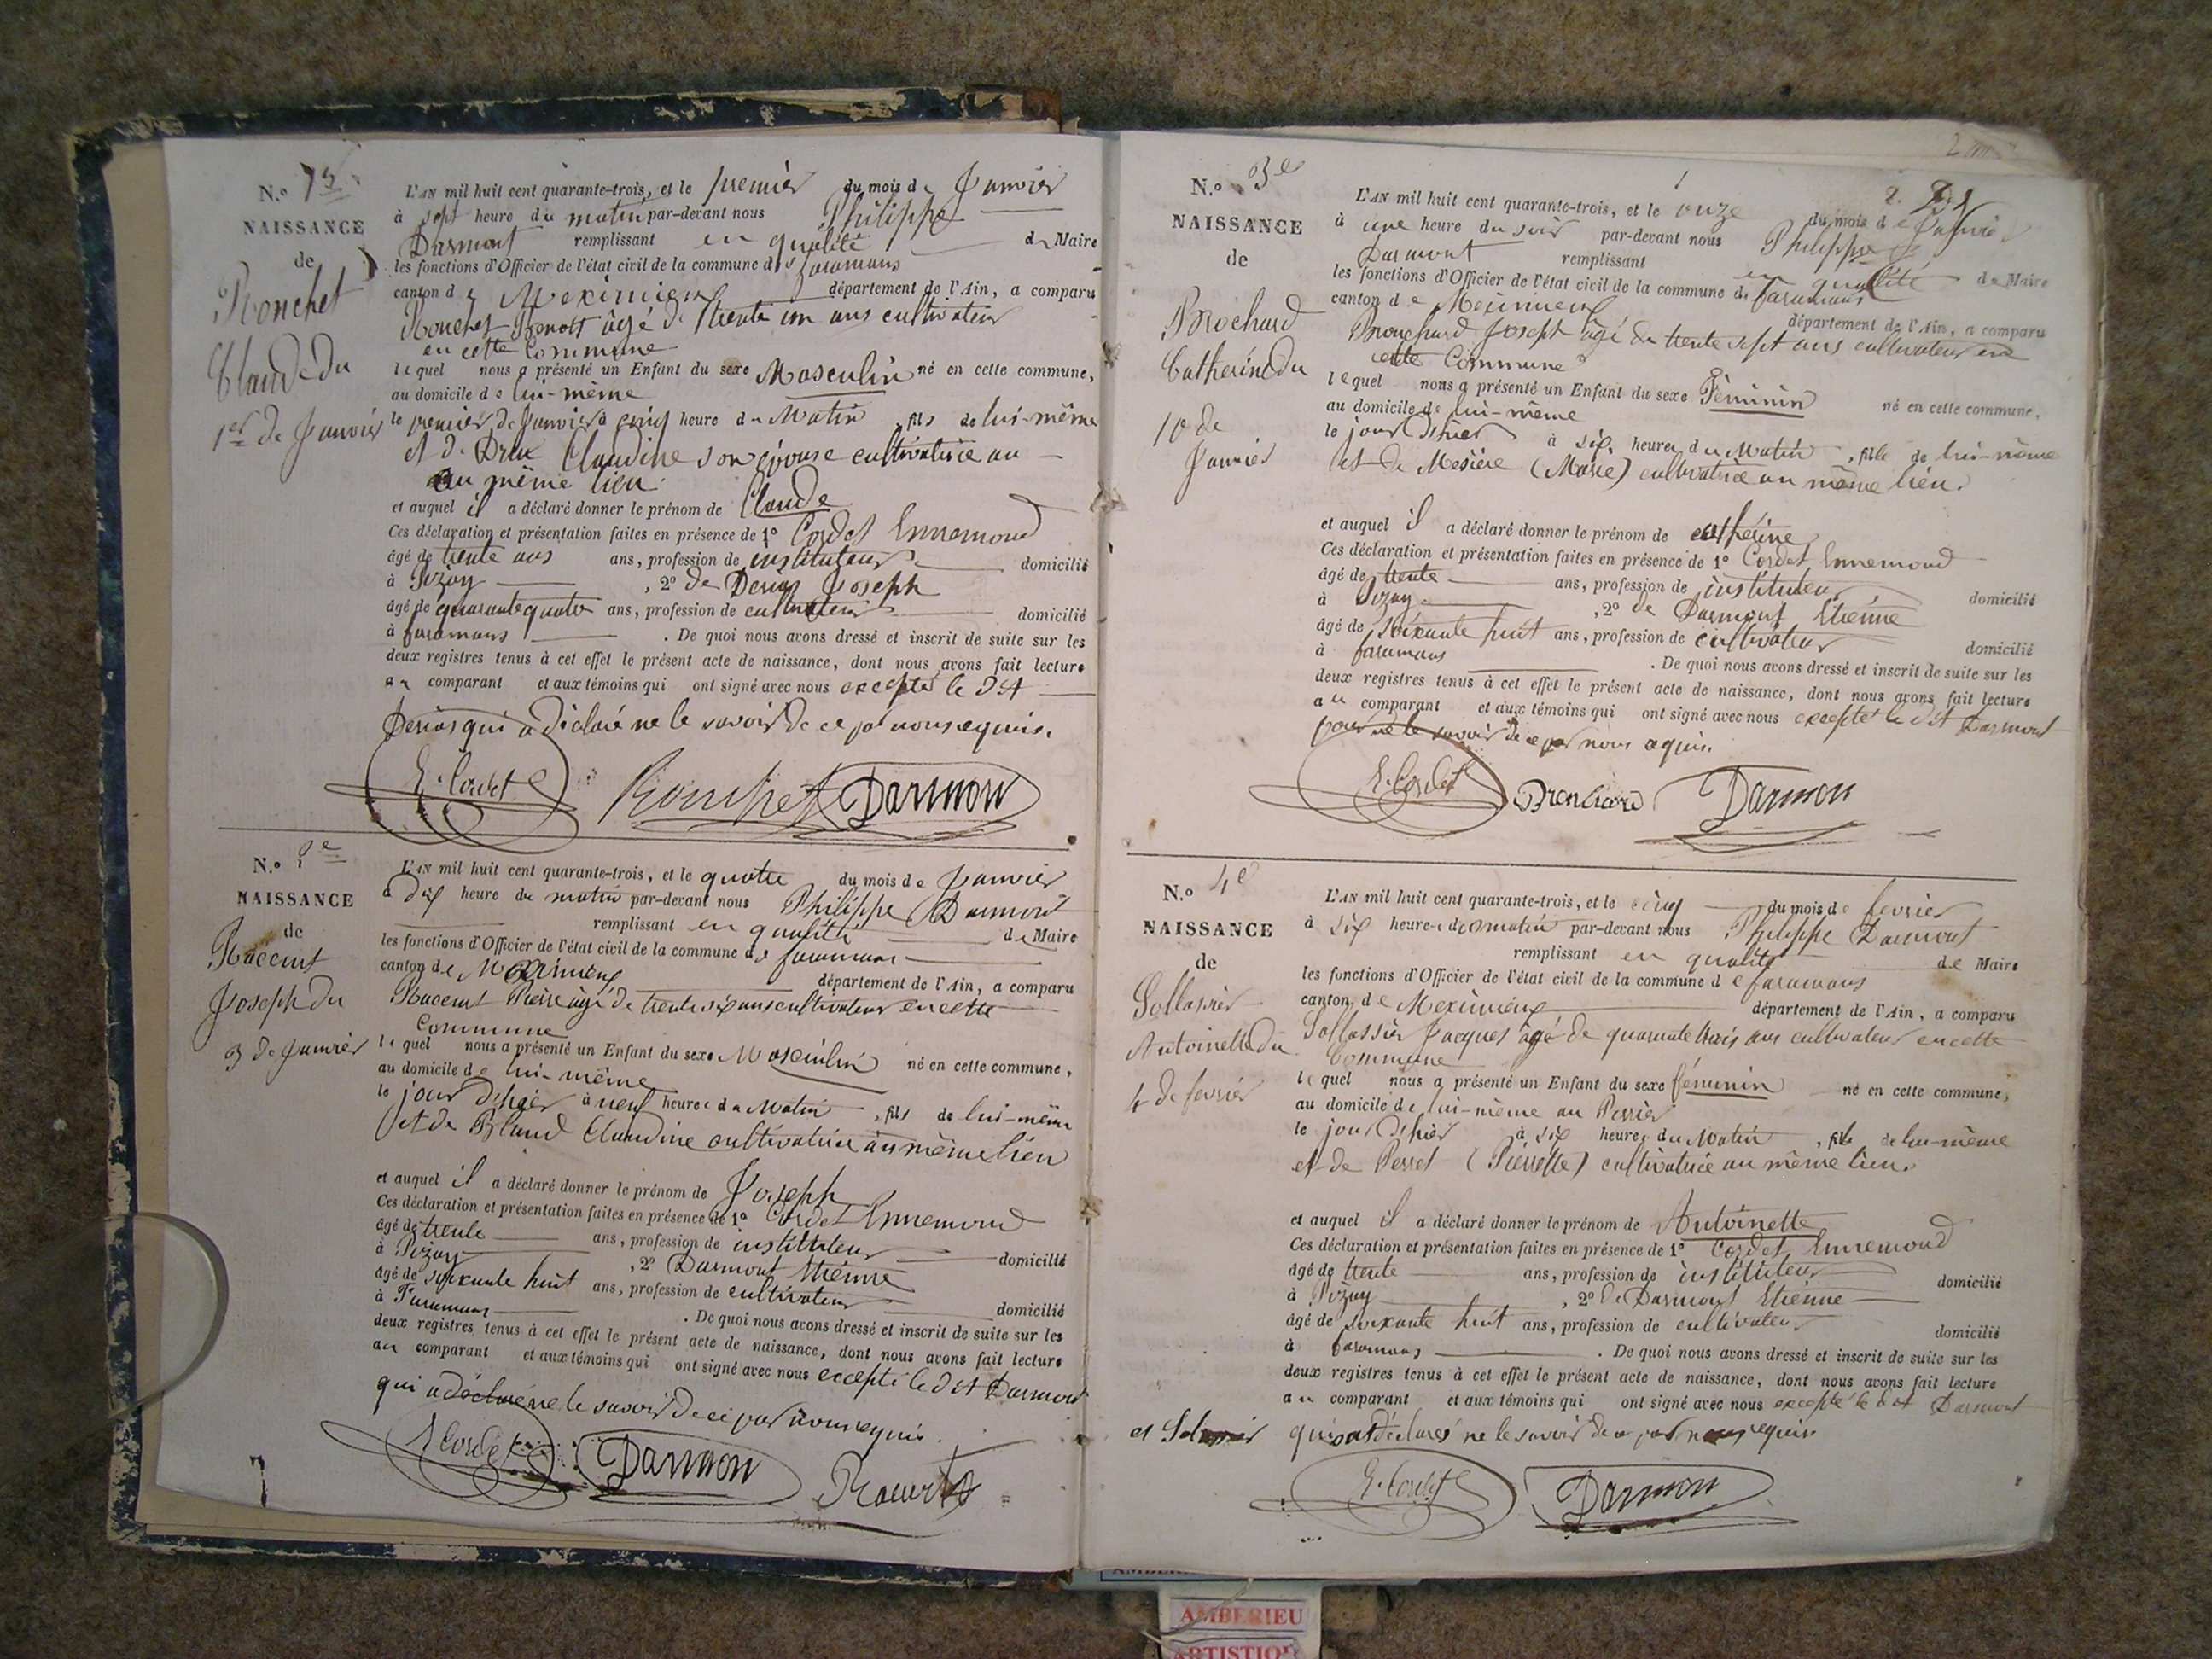 N.o 1er
NAISSANCE
de
Ronchet
Claude du
1er de Janvier
L'AN mil huit cent quarante-trois, et le premier du mois de Janvier
à sept heure du matin par-devant nous Philippe
Darmont remplissant en qualité de Maire
les fonctions d'Officier de l'état civil de la commune de faramans
canton de Meximieux département de l'Ain, a comparu
Ronchet Benoit âgé de trente un ans cultivateur
en cette Commune
lequel nous a présenté un Enfant du sexe Masculin né en cette commune,
au domicile de lui-même
le premier de Janvier à cinq heure du Matin , fils de lui-même
et de Claudine son épouse cultivatrice au
au même lieu.
et auquel il a déclaré donner le prénom de Claude
Ces déclaration et présentation faites en présence de 1o Cordet Ennemond
âgé de trente ans ans, profession de instituteur domicilié
à Pizay , 2o de Joseph
âgé de quarante quatre ans, profession de cultivateur domicilié
à faramans . De quoi nous avons dressé et inscrit de suite sur les
deux registres tenus à cet effet le présent acte de naissance, dont nous avons fait lecture
au comparant et aux témoins qui ont signé avec nous excepté le dit
qui a déclaré ne le savoir de ce par nous requis.
E. Cordet Ronchet Darmon
N.o 2e
NAISSANCE
de
Racent
Joseph du
3 de Janvier
L'AN mil huit cent quarante-trois, et le quatre du mois de Janvier
à dix heure du matin par-devant nous Philippe Darmont
remplissant en qualité de Maire
les fonctions d'Officier de l'état civil de la commune de faramans
canton de Meximieux département de l'Ain, a comparu
Racent Pierre âgé de trente six ans cultivateur en cette
Commune
lequel nous a présenté un Enfant du sexe Masculin né en cette commune,
au domicile de lui-même
le jour d'hier à neuf heures du Matin , fils de lui-même
et de Bland Claudine cultivatrice au même lieu
et auquel il a déclaré donner le prénom de Joseph
Ces déclaration et présentation faites en présence de 1o Cordet Ennemond
âgé de trente ans, profession de instituteur domicilié
à Pizay , 2o Darmont Etienne
âgé de soixante huit ans, profession de cultivateur domicilié
à Faramans . De quoi nous avons dressé et inscrit de suite sur les
deux registres tenus à cet effet le présent acte de naissance, dont nous avons fait lecture
au comparant et aux témoins qui ont signé avec nous excepté le dit Darmont
qui a déclaré ne le savoir de ce par nous requis.
E Cordet Darmon
N.o 3e
NAISSANCE
de
Brochard
Catherine du
10 de
Janvier
L'AN mil huit cent quarante-trois, et le onze du mois de Janvier
à une heure du soir par-devant nous Philippe
Darmont remplissant en qualité de Maire
les fonctions d'Officier de l'état civil de la commune de faramans
canton de Meximieux département de l'Ain, a comparu
Brouchard Joseph âgé de trente sept ans cultivateur en
cette Commune
lequel nous a présenté un Enfant du sexe Féminin né en cette commune,
au domicile de lui-même
le jour d'hier à six heures du Matin , fille de lui-même
et de Mesière (Marie) cultivatrice au même lieu.
et auquel il a déclaré donner le prénom de catherine
Ces déclaration et présentation faites en présence de 1o Cordet Ennemond
âgé de trente ans, profession de instituteur domicilié
à Pizay , 2o de Darmont Etienne
âgé de soixante huit ans, profession de cultivateur domicilié
à faramans . De quoi nous avons dressé et inscrit de suite sur les
deux registres tenus à cet effet le présent acte de naissance, dont nous avons fait lecture
au comparant et aux témoins qui ont signé avec nous excepté le dit Darmont
pour ne le savoir de ce par nous requis.
E. Cordet Darmon
N.o 4e
NAISSANCE
de
Sollassier
Antoinette du
4 de fevrier
L'AN mil huit cent quarante-trois, et le cinq du mois de fevrier
à six heures du matin par-devant nous Philippe Darmont
remplissant en qualité de Maire
les fonctions d'Officier de l'état civil de la commune de faramans
canton de Meximieux département de l'Ain, a comparu
Sollassier Jacques âgé de quarante trois ans cultivateur en cette
Commune
lequel nous a présenté un Enfant du sexe féminin né en cette commune,
au domicile de lui-même au Perrier
le jour d'hier à six heures du Matin , fille de lui-même
et de Perret (Pierrette) cultivatrice au même lieu.
et auquel il a déclaré donner le prénom de Antoinette
Ces déclaration et présentation faites en présence de 1o Cordet Ennemond
âgé de trente ans, profession de instituteur domicilié
à Pizay , 2o de Darmont Etienne
âgé de soixante huit ans, profession de cultivateur domicilié
à faramans . De quoi nous avons dressé et inscrit de suite sur les
deux registres tenus à cet effet le présent acte de naissance, dont nous avons fait lecture
au comparant et aux témoins qui ont signé avec nous excepté le dit Darmont
qui ont déclarés ne le savoir de ce par nous requis
E. Cordet Darmon
AMBERIEU